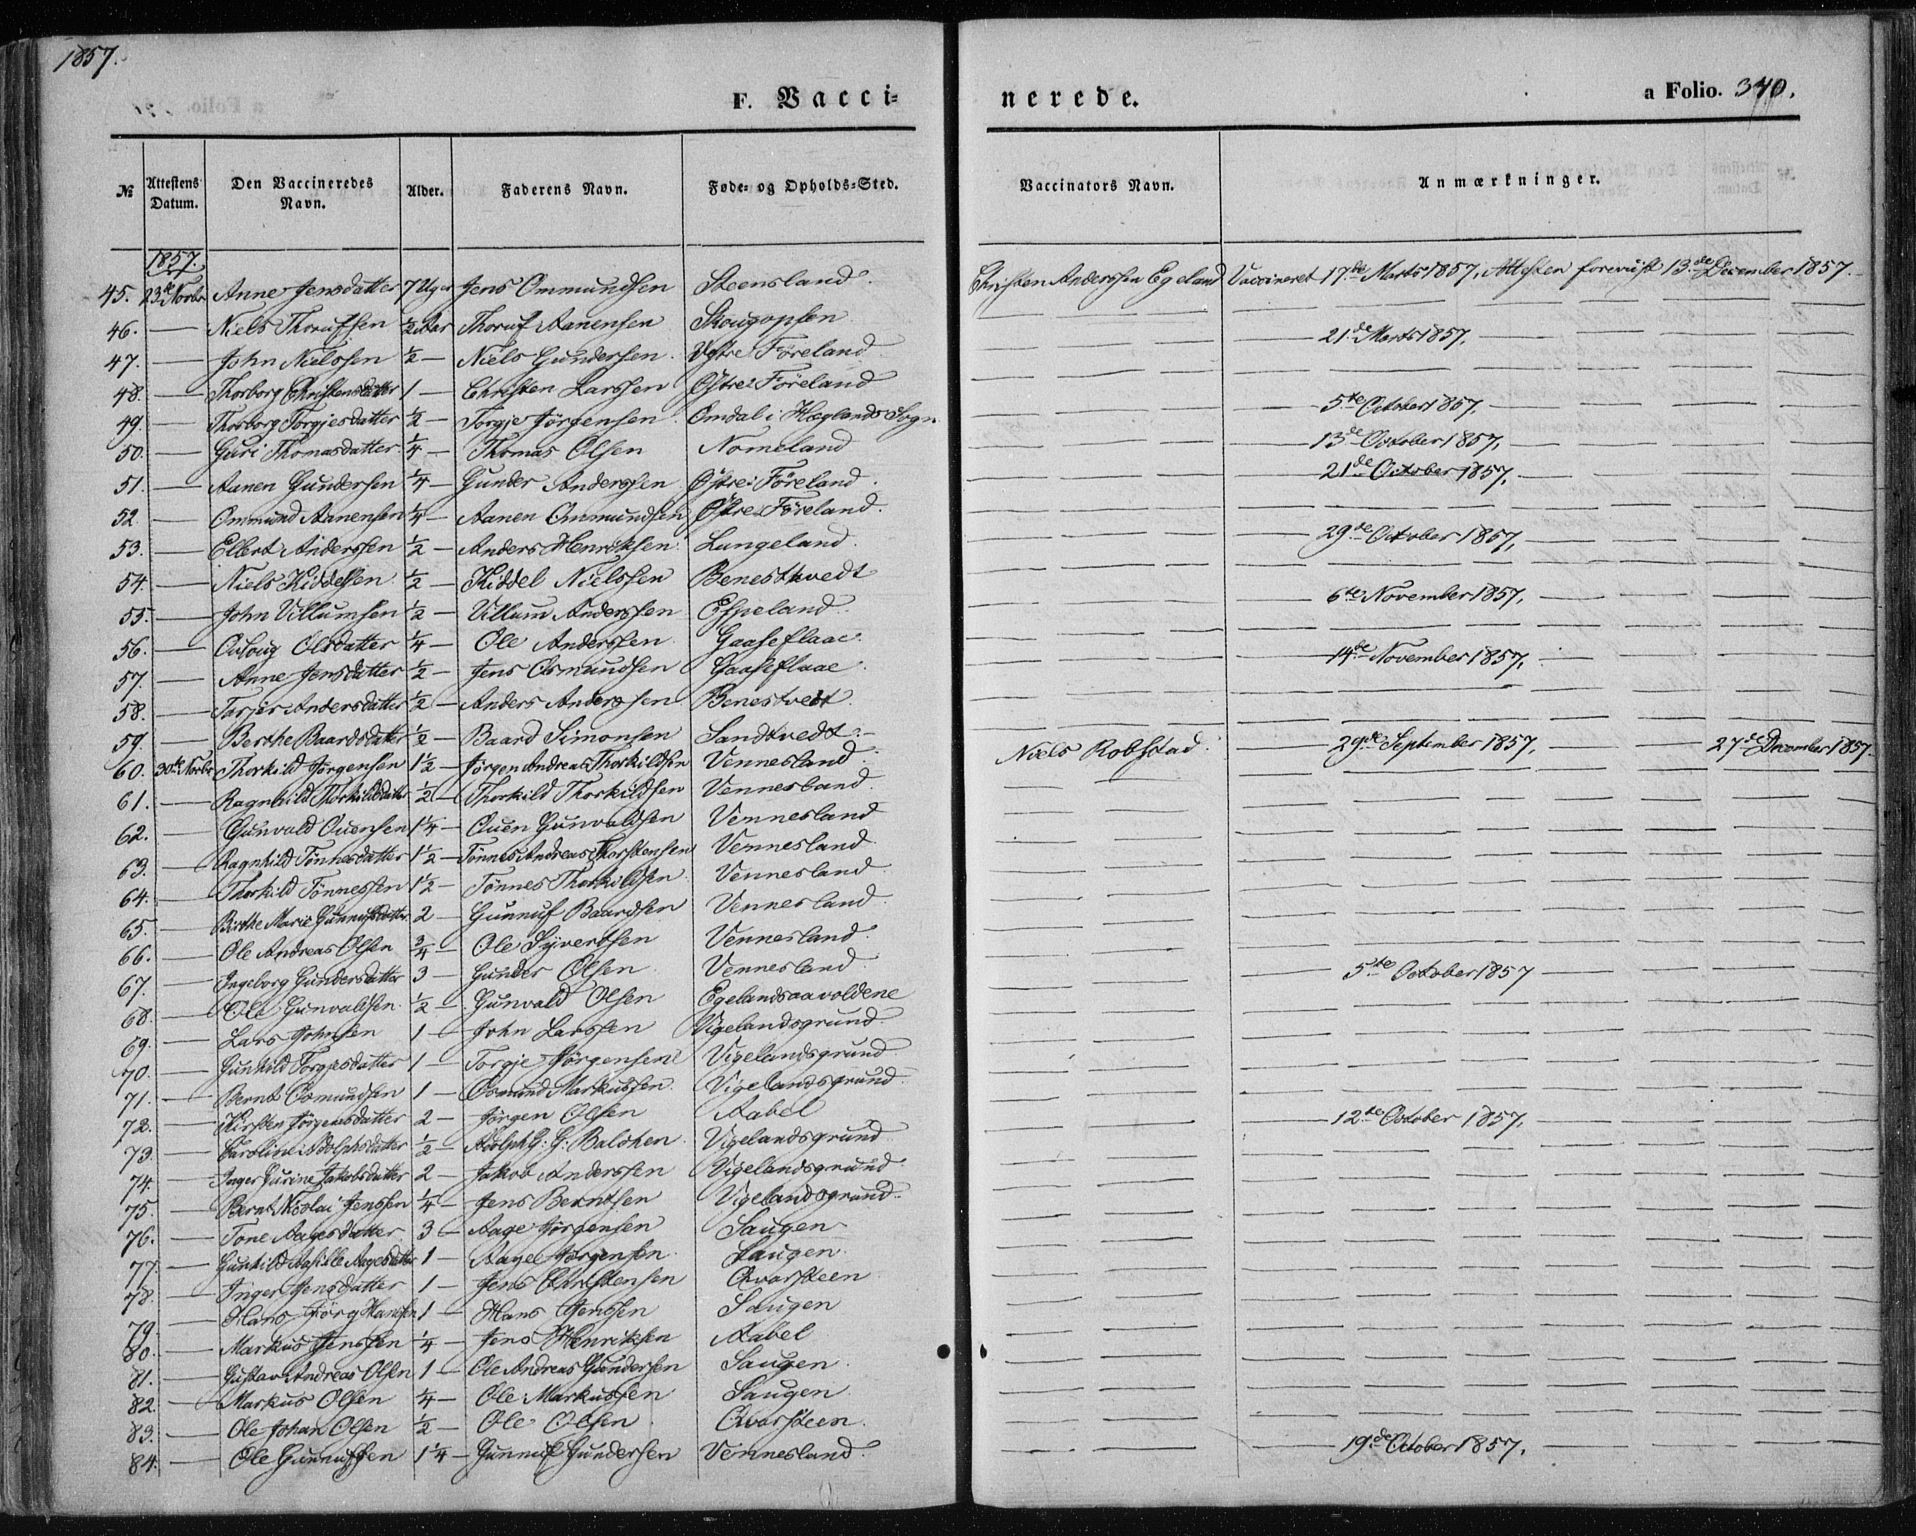 1857.
F. Vacci=
nerede.
a Folio. 370.
№ Attestens Datum. Den Vaccineredes Navn. Alder. Faderens Navn. Føde- og Opholds-Sted. Vaccinators Navn. Anmærkninger.
1857.
45. 23de Novbr Anne Jensdatter 7 Uger Jens Ommundsen Steensland. Christen Anderssen Egeland Vaccineret 17de Marts 1857, Attesten foreviist 13de December 1857.
46. — Niels Thorufsen ½ Aar Thoruf Aanensen Skougopsen
47. — John Nielssen ½ — Niels Gundersen Vestre Föreland — 21de Marts 1857, —
48. — Thorborg Christensdatter 1 — Christen Larssen Østre Föreland
49. — Thorborg Torgjesdatter ½ — Torgje Jörgensen Omdal i Hæglands Sogn — 5te October 1857, —
50. — Guri Thomasdatter ¼ — Thomas Olsen Nomeland — 13de October 1857,
51. — Aanen Gundersen ¼ — Gunder Anderssen Østre Föreland. — 21de October 1857,
52. — Ommund Aanensen ¼ — Aanen Ommundsen Østre Föreland.
53. — Elbert Anderssen ½ — Anders Henriksen Lungeland. — 29de October 1857,
54. — Niels Kiddelsen ½ — Kiddel Nielssen Benesthvedt
55. — John Villumsen ½ — Villum Anderssen Espeland. — 6te November 1857,
56. — Osloug Olsdatter ¼ — Ole Anderssen Gaaseflaae.
57. — Anne Jensdatter ½ — Jens Osmundsen Gaaseflaae. — 14de November 1857,
58. — Tarjer Andersdatter ½ — Anders Anderssen Benestvedt.
59. — Berthe Baardsdatter ½ — Baard Simonsen Sandtvedt.
60. 30te Novbr Thorkild Jörgensen 1½ — Jörgen Andreas Thorkildsen Vennesland. Niels Robstad. — 29de September 1857, — 27de December 1857.
61. — Ragnhild Thorkildsdatter ½ — Thorkild Thorkildsen Vennesland.
62. — Gunvald Ouensen 1¼ — Ouen Gunvaldsen Vennesland
63. — Ragnhild Tönnesdatter 1½ — Tönnes Andreas Thorstensen Vennesland.
64. — Thorkild Tönnessen 1½ — Tönnes Thorkildsen Vennesland
65. — Birthe Marie Gunnufsdatter 2 — Gunnuf Baardsen Vennesland.
66. — Ole Andreas Olsen ¾ — Ole Syvertsen Vennesland.
67. — Ingeborg Gundersdatter 3 — Gunder Olsen Vennesland. — 5te October 1857 —
68. — Ole Gunvaldsen ½ — Gunvald Olsen Egelandsaavoldene
69. — Lars Johnsen 1 — John Larssen Vigelandsgrund.
70. — Gunhild Torgjesdatter 1 — Torgje Jörgensen Vigelandsgrund
71. — Bernt Osmundsen 1 — Osmund Markussen Vigelandsgrund.
72. — Kirsten Jörgensdatter 2 — Jörgen Olsen Aabel — 12te October 1857,
73. — Caroline Adolphsdatter ½ — Adolph G: G: Balchen Vigelandsgrund
74. — Inger Gurine Jakobsdatter 2 — Jakob Anderssen Vigelandsgrund.
75. — Bernt Nicolai Jenssen ¼ — Jens Berntsen Vigelandsgrund.
76. — Tone Aagesdatter 3 — Aage Jörgensen Saugen
77. — Gunhild Aagesdatter 1 — Aage Jörgensen Saugen.
78. — Inger Jensdatter 1 — Jens Christensen Qvarsteen
79. — Hans Jörg Hansen 1 — Hans Jenssen Saugen
80. — Markus Jenssen ¼ — Jens Henriksen Aabel
81. — Gustav Andreas Olsen 1 — Ole Andreas Gundersen Saugen.
82. — Markus Olsen ¼ — Ole Markussen Saugen
83. — Ole Johan Olsen ½ — Ole Olsen Qvarsteen.
84. — Ole Gunnufsen 1¼ — Gunnuf Gundersen Vennesland. — 19de October 1857,